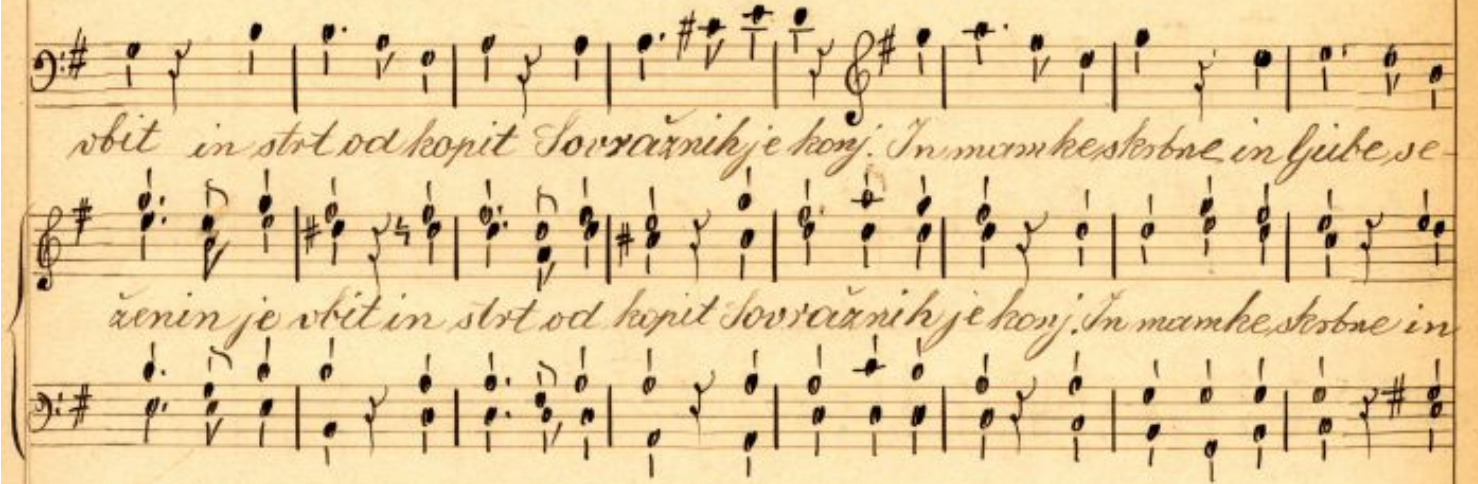 vbit in strt od kopit Sovražnih je konj. In mamke skrbne in ljube, se-
ženin je vbit in strt od kopit Sovražnih je konj. In mamke skrbne in